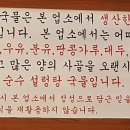 국물은 본 업소에서 생산한
입니다. 본 업소에서는 어떠
우유, 분유, 땅콩가루, 대두,
고 많은 양의 사골을 오랜시
순수 설렁탕 국물입니다.
시 본 업소에서 정성으로 담은 밑
을 재활용하지 않습니다.